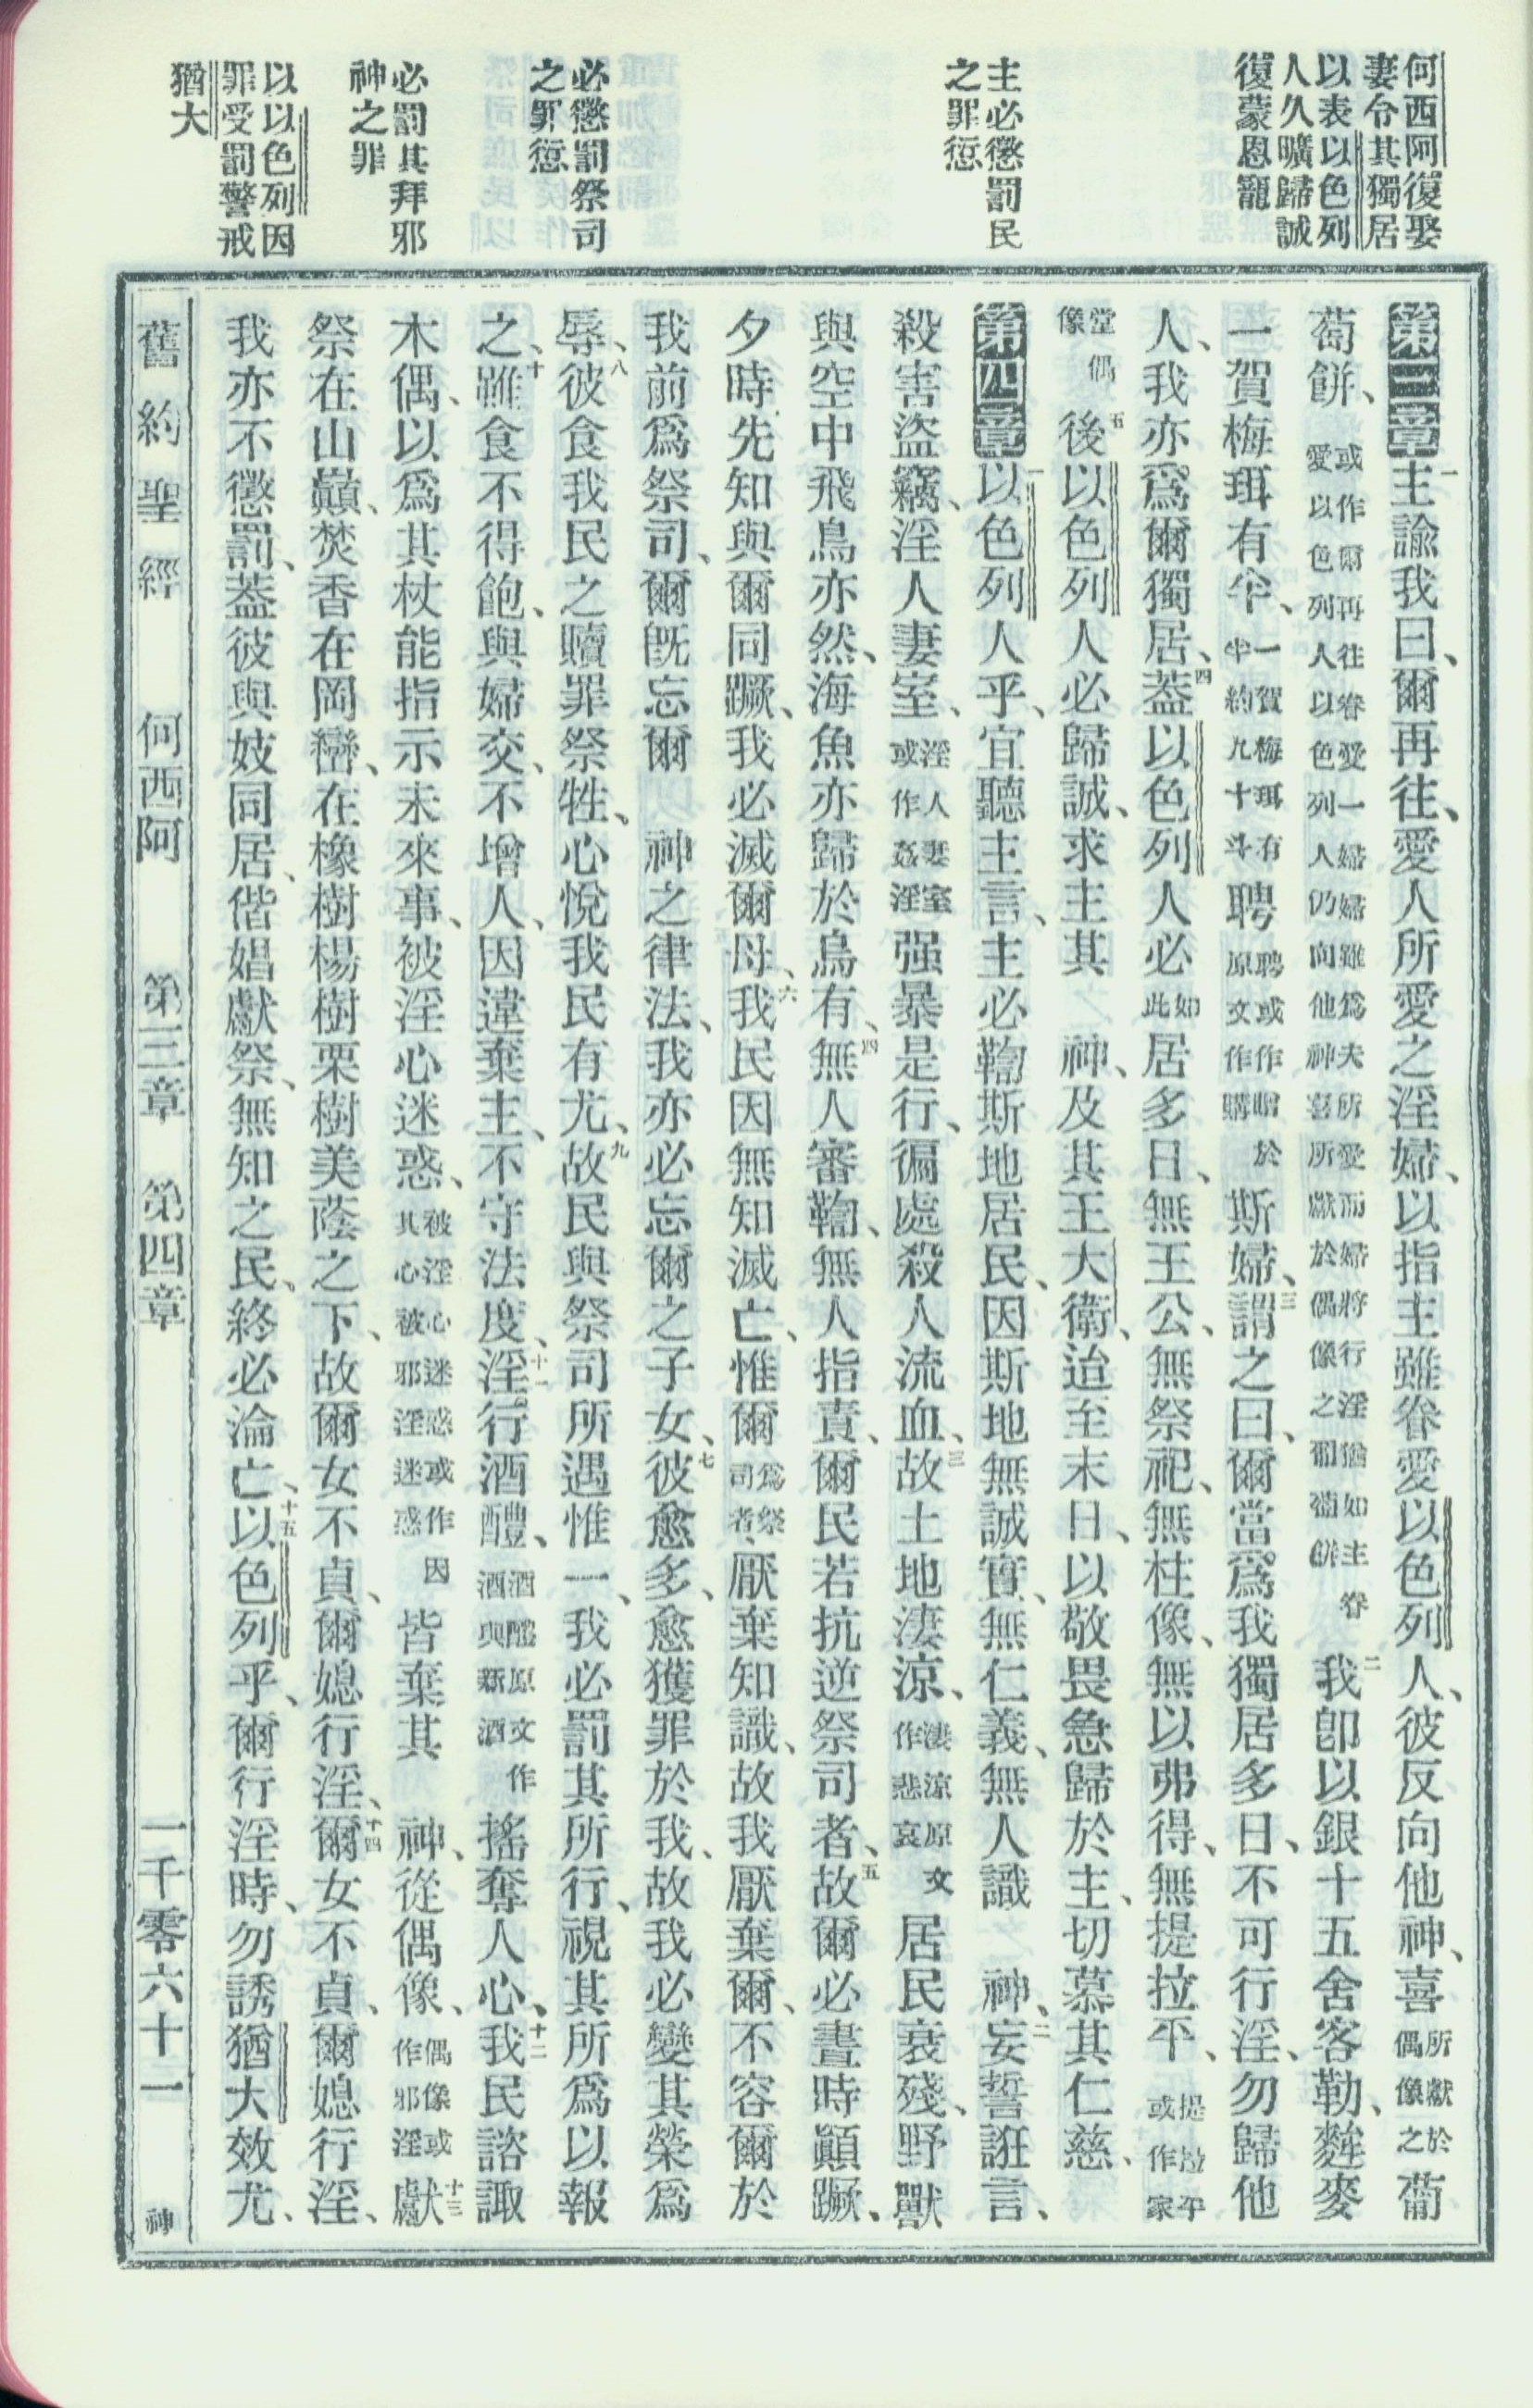 何西阿復娶
妻令其獨居
以表以色列
人久曠歸誠
復蒙恩寵
主必懲罰民
之罪愆
必懲罰祭司
之罪愆
必罰其拜邪
神之罪
以以色列因
罪受罰警戒
猶大
第三章一主諭我曰、爾再往、愛人所愛之淫婦、以指主雖眷愛以色列人、彼反向他神、喜所獻於偶像之葡
萄餅、或作爾再往眷愛一婦婦雖爲夫所愛而婦將行淫猶如主眷愛以色列人以色列人仍向他神喜所獻於偶像之葡萄餅二我卽以銀十五舍客勒、麰麥
一賀梅珥有半、一賀梅珥有半約九十斗聘聘或作贈原文作購於斯婦、三謂之曰、爾當爲我獨居多日、不可行淫、勿歸他
人、我亦爲爾獨居、四葢以色列人必如此居多日、無王公、無祭祀、無柱像、無以弗得、無提拉平、提拉平或作家
堂偶像五後以色列人必歸誠、求主其神、及其王大衛、迨至末日、以敬畏急歸於主、切慕其仁慈、
第四章一以色列人乎、宜聽主言、主必鞫斯地居民、因斯地無誠實、無仁義、無人識神、二妄誓誑言、
殺害盜竊、淫人妻室、淫人妻室或作姦淫强暴是行、徧處殺人流血、三故土地淒涼、淒涼原文作悲哀居民衰殘、野獸
與空中飛鳥亦然、海魚亦歸於烏有、四無人審鞫、無人指責、爾民若抗逆祭司者、五故爾必晝時顚蹶、
夕時先知與爾同蹶、我必滅爾母、六我民因無知滅亡、惟爾爲祭司者、厭棄知識、故我厭棄爾、不容爾於
我前爲祭司、爾旣忘爾神之律法、我亦必忘爾之子女、七彼愈多、愈獲罪於我、故我必變其榮爲
辱、八彼食我民之贖罪祭牲、心悅我民有尤、九故民與祭司所遇惟一、我必罰其所行、視其所爲以報
之、十雖食不得飽、與婦交、不增人、因違棄主、不守法度、十一淫行酒醴、酒醴原文作酒與新酒搖奪人心、十二我民諮諏
木偶、以爲其杖能指示未來事、被淫心迷惑、被淫心迷惑或作因其心被邪淫迷惑皆棄其神、從偶像、偶像或作邪淫十三獻
祭在山巔、焚香在岡巒、在橡樹楊樹栗樹美蔭之下、故爾女不貞、爾媳行淫、十四爾女不貞、爾媳行淫、
我亦不懲罰、葢彼與妓同居、偕娼獻祭、無知之民、終必淪亡、十五以色列乎、爾行淫時、勿誘猶大效尤、
舊約聖經 何西阿 第三章 第四章 一千零六十一 神